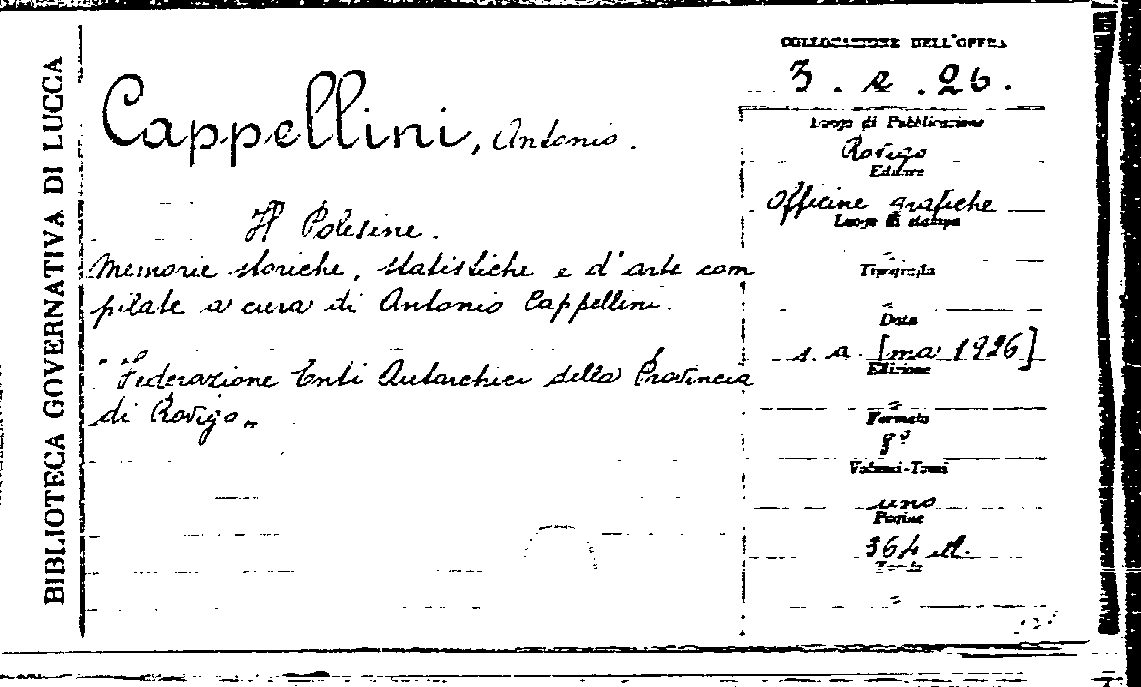 BIBLIOTECA GOVERNATIVA DI LUCCA
COLLOCAZIONE DELL'OPERA
3. e. 26.
Cappellini, Antonio.
Il Polesine.
Memorie storiche, statistiche e d'arte com
pilate a cura di Antonio Cappellini.
"Federazione Enti Autarchici della Provincia
di Rovigo"
Luogo di Pubblicazione
Rovigo
Editore
Officine grafiche
Luogo di stampa
Tipografia
Data
s. a. [ma 1926]
Edizione
Formato
8°
Volumi-Tomi
uno
Pagine
364 ill.
Tavole